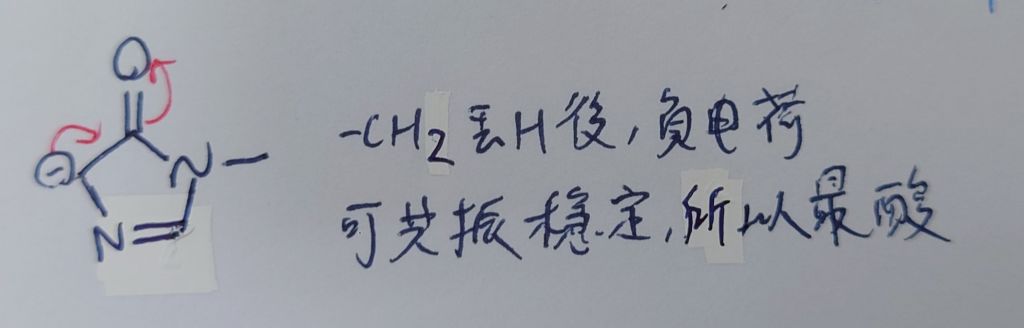 O
⊖
N
N
-CH2丟H後,負电荷
可共振穩定,所以最酸